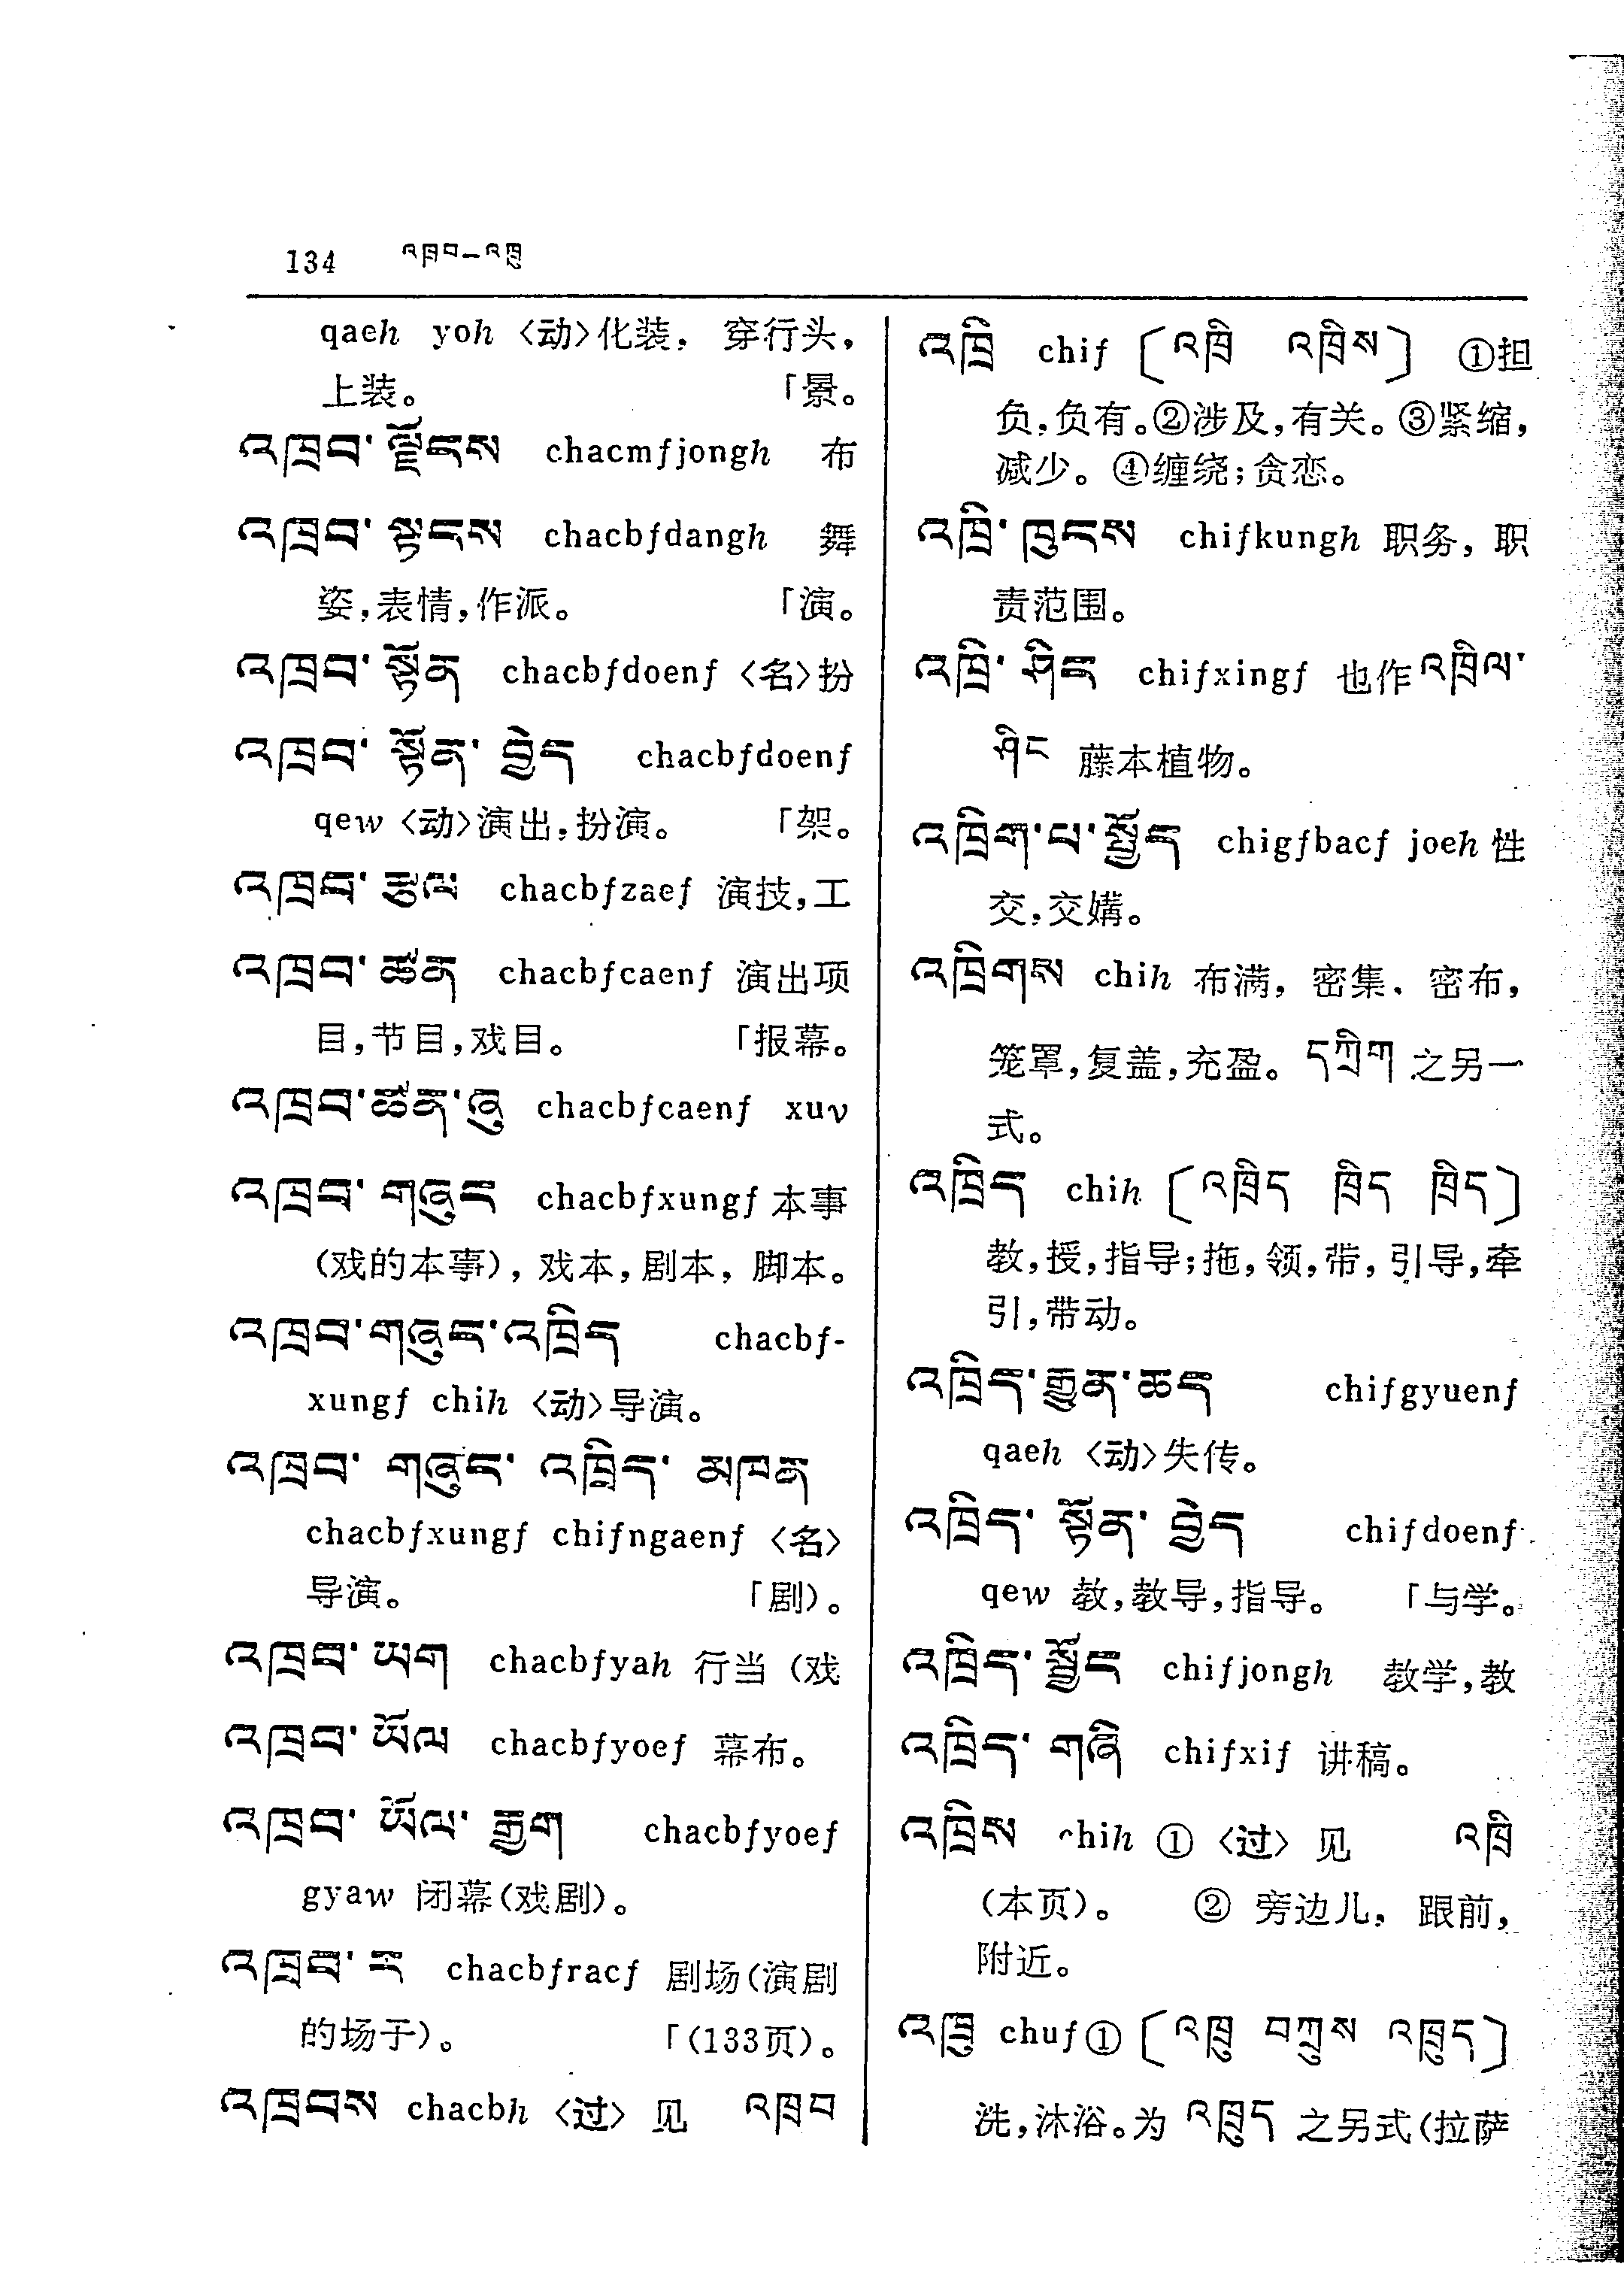 134 འཁྲབ—འཁྲུ
qaeh yoh 〈动〉化装, 穿行头,
上装。 「景。
འཁྲབ་ལྗོངས chacmfjongh 布
འཁྲབ་སྟངས chacbfdangh 舞
姿,表情,作派。 「演。
འཁྲབ་སྟོན chacbfdoenf 〈名〉扮
འཁྲབ་སྟོན་བྱེད chacbfdoenf
qew 〈动〉演出,扮演。 「架。
འཁྲབ་རྩལ chacbfzaef 演技,工
འཁྲབ་ཚན chacbfcaenf 演出项
目,节目,戏目。 「报幕。
འཁྲབ་ཚན་ཞུ chacbfcaenf xuv
འཁྲབ་གཞུང chacbfxungf 本事
(戏的本事), 戏本,剧本, 脚本。
འཁྲབ་གཞུང་འཁྲིད chacbf-
xungf chih 〈动〉导演。
འཁྲབ་གཞུང་འཁྲིད་མཁན
chacbfxungf chifngaenf 〈名〉
导演。 「剧)。
འཁྲབ་ཡག chacbfyah 行当 (戏
འཁྲབ་ཡོལ chacbfyoef 幕布。
འཁྲབ་ཡོལ་རྒྱག chacbfyoef
gyaw 闭幕(戏剧)。
འཁྲབ་ར chacbfracf 剧场(演剧
的场子)。 「(133页)。
འཁྲབས chacbh 〈过〉 见 འཁྲབ
འཁྲི chif 〔འཁྲི འཁྲིས〕 ①担
负,负有。②涉及,有关。③紧缩,
减少。④缠绕;贪恋。
འཁྲི་ཁུངས chifkungh 职务, 职
责范围。
འཁྲི་ཤིང chifxingf 也作འཁྲིལ་
ཤིང 藤本植物。
འཁྲིག་པ་སྤྱོད chigfbacf joeh 性
交,交媾。
འཁྲིགས chih 布满, 密集, 密布,
笼罩,复盖,充盈。དཀྲིག 之另一
式。
འཁྲིད chih 〔འཁྲིད ཁྲིད ཁྲིད〕
教,授,指导;拖,领,带,引导,牵
引,带动。
འཁྲིད་རྒྱུན་ཆད chifgyuenf
qaeh 〈动〉失传。
འཁྲིད་སྟོན་བྱེད chifdoenf
qew 教,教导,指导。 「与学。
འཁྲིད་སྦྱོང chifjongh 教学,教
འཁྲིད་གཞི chifxif 讲稿。
འཁྲིས chih ① 〈过〉 见 འཁྲི
(本页)。 ② 旁边儿, 跟前,
附近。
འཁྲུ chuf ① 〔འཁྲུ བཀྲུས འཁྲུད〕
洗,沐浴。为 འཁྲུད 之另式(拉萨